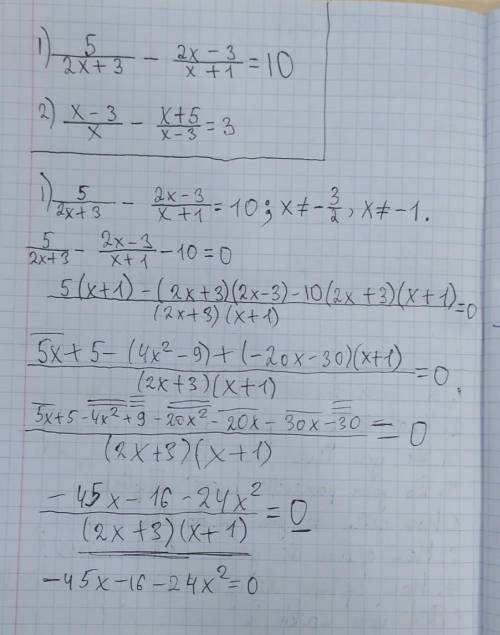 1) 5/(2x+3) - (2x-3)/(x+1) = 10
2) (x-3)/x - (x+5)/(x-3) = 3
1) 5/(2x+3) - (2x-3)/(x+1) = 10; x ≠ -3/2, x ≠ -1.
5/(2x+3) - (2x-3)/(x+1) - 10 = 0
(5(x+1) - (2x+3)(2x-3) - 10(2x+3)(x+1))/((2x+3)(x+1)) = 0
(5x + 5 - (4x² - 9) + (-20x - 30)(x+1))/((2x+3)(x+1)) = 0.
(5x + 5 - 4x² + 9 - 20x² - 20x - 30x - 30)/((2x+3)(x+1)) = 0
(-45x - 16 - 24x²)/((2x+3)(x+1)) = 0
-45x - 16 - 24x² = 0